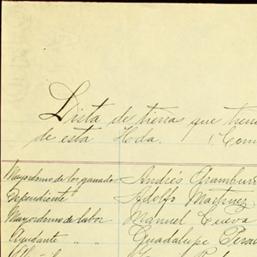 Lista de tierras que tienen
de esta Hda. (Com
Mayordomo de los ganados Andrés Aramburo
Dependiente Adolfo Martinez
Mayordomo de labor Manuel Cueva
Ayudante " " Guadalupe